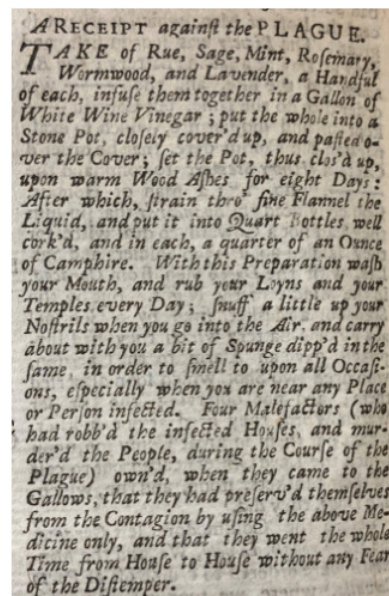 A RECEIPT againſt the PLAGUE.
TAKE of Rue, Sage, Mint, Roſemary,
Wormwood, and Lavender, a Handful
of each, infuſe them together in a Gallon of
White Wine Vinegar; put the whole into a
Stone Pot, cloſely cover'd up, and paſted o-
ver the Cover; ſet the Pot, thus clos'd up,
upon warm Wood Aſhes for eight Days:
After which, ſtrain thro' fine Flannel the
Liquid, and put it into Quart Bottles well
cork'd, and in each, a quarter of an Ounce
of Camphire. With this Preparation waſh
your Mouth, and rub your Loyns and your
Temples every Day; ſnuff a little up your
Noſtrils when you go into the Air, and carry
about with you a bit of Spunge dipp'd in the
ſame, in order to ſmell to upon all Occaſi-
ons, eſpecially when you are near any Place
or Perſon infected. Four Malefactors (who
had robb'd the infected Houſes, and mur-
der'd the People, during the Courſe of the
Plague) own'd, when they came to the
Gallows, that they had preſerv'd themſelves
from the Contagion by uſing the above Me-
dicine only, and that they went the whole
Time from Houſe to Houſe without any Fear
of the Diſtemper.